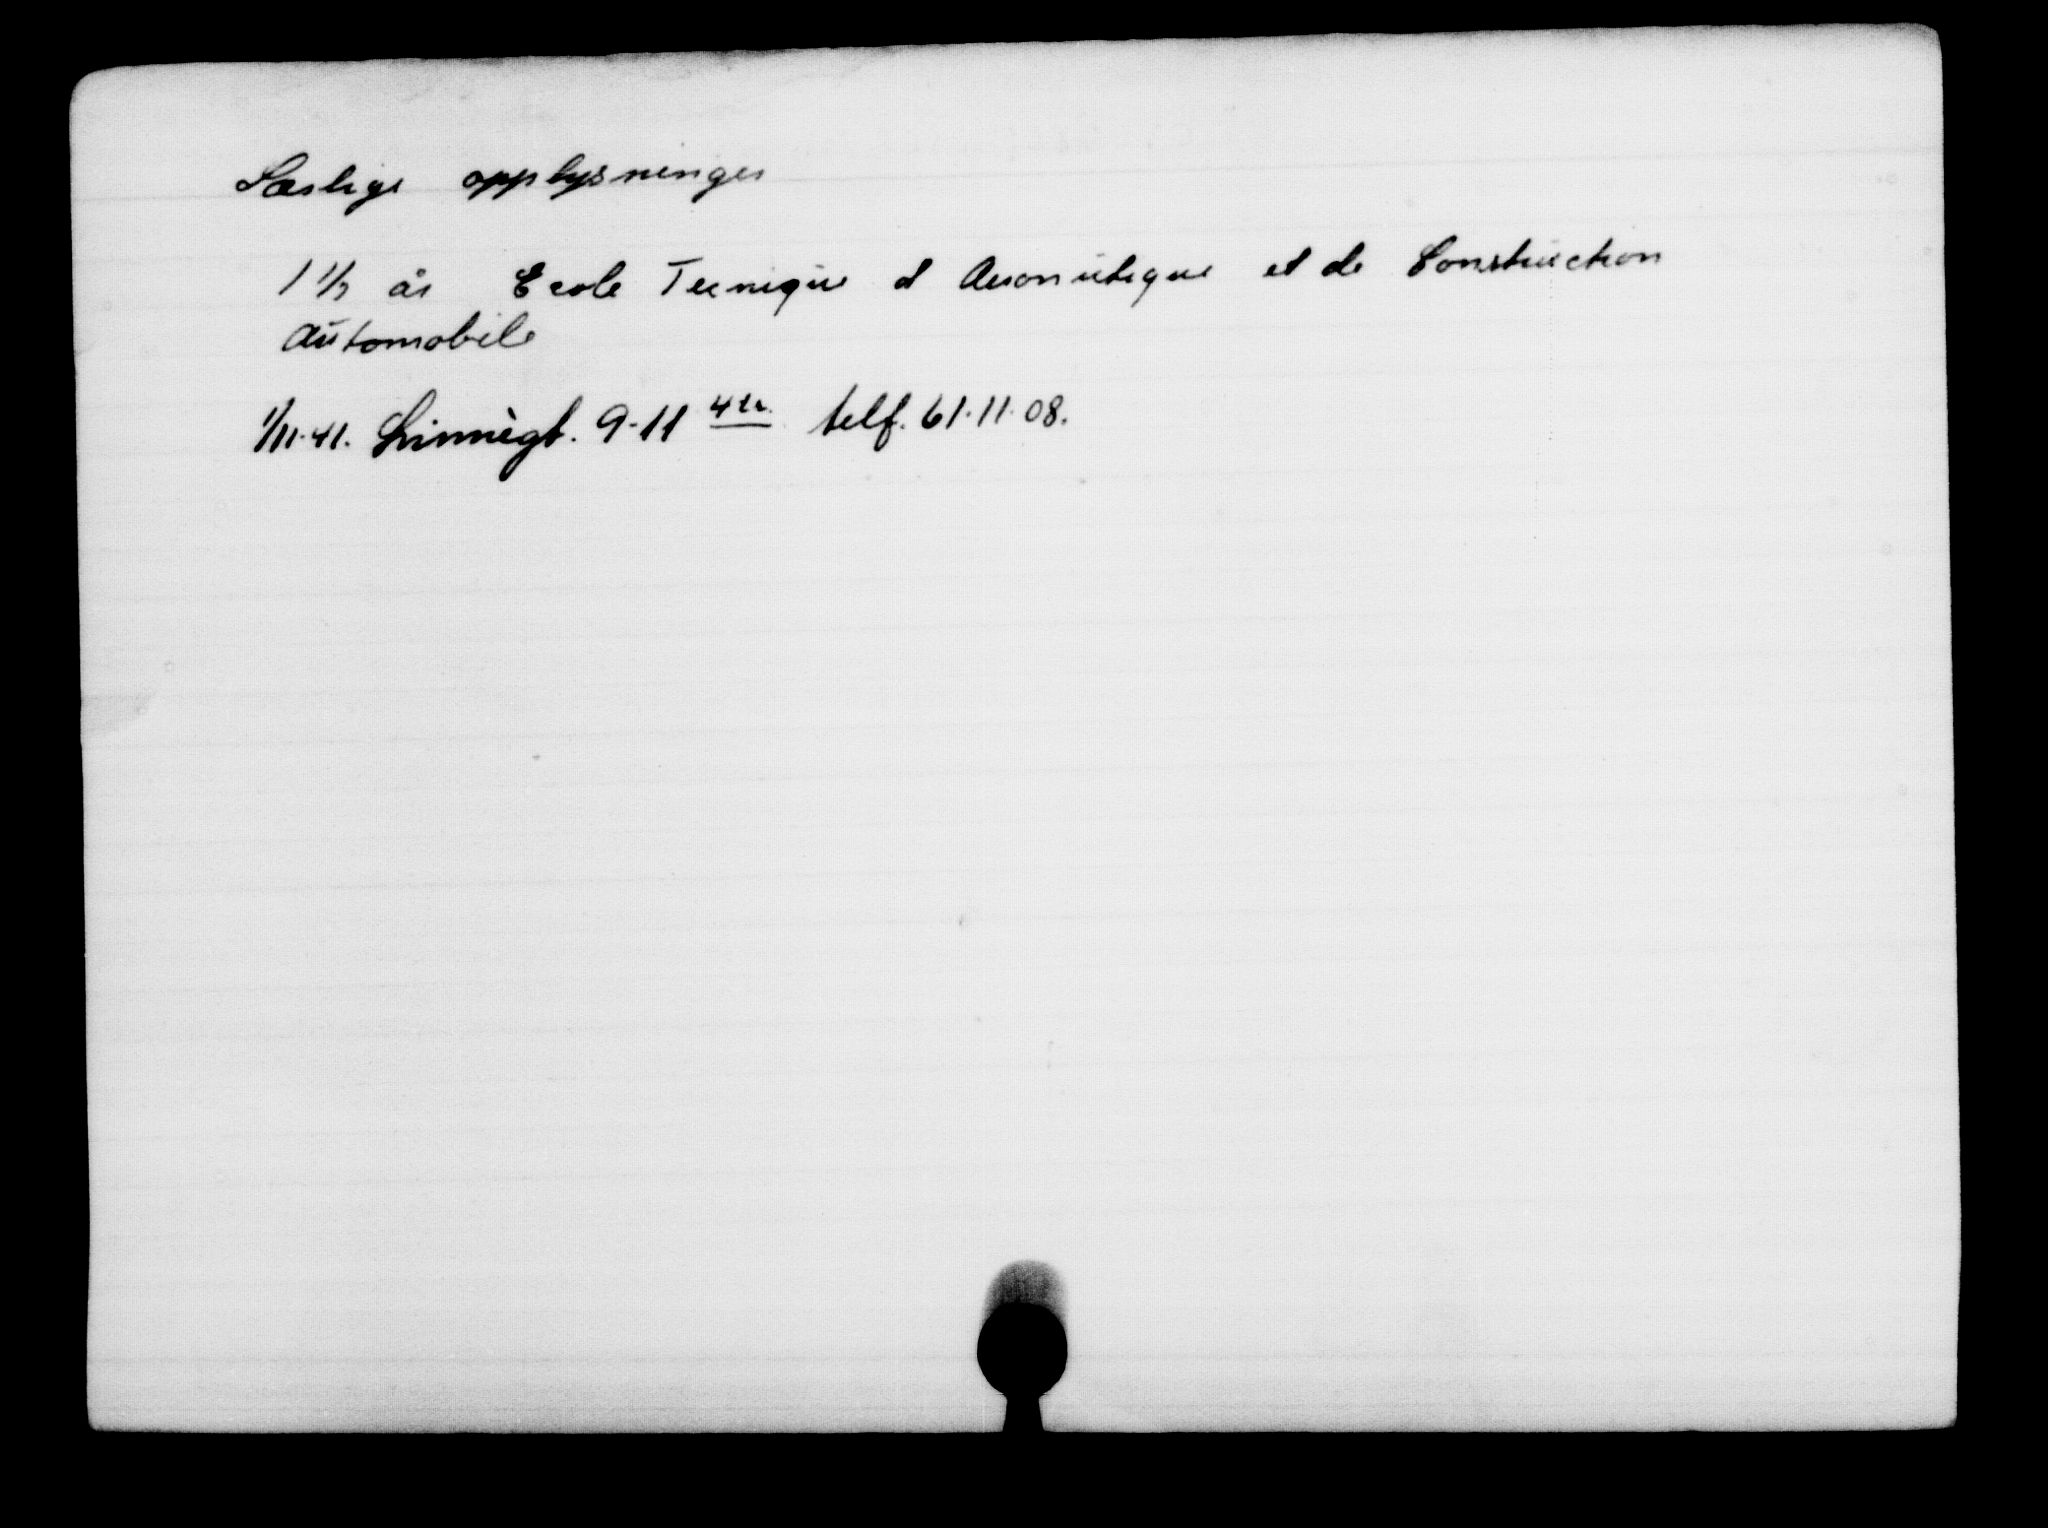 Særlige opplysninger
1 1/2 år Ecole Tecnique d Aeronutique et de Construction
Automobile
1/11-41. Linnègt. 9-11 4tr. telf. 61.11.08.